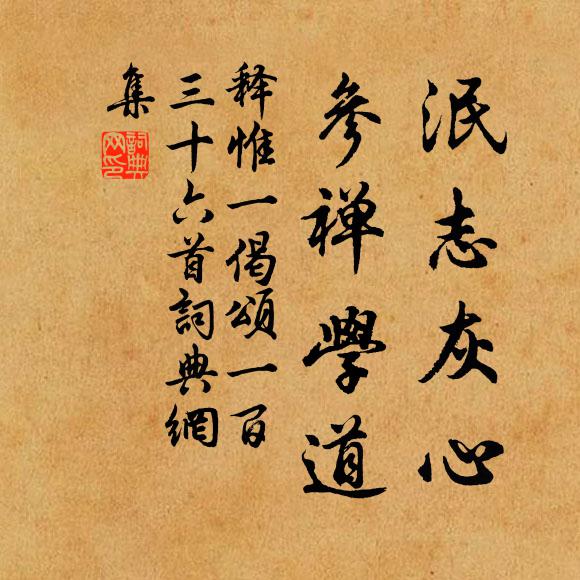 泯志灰心
參禅學道
释惟一偈頌一百
三十六首詞典網
集
詞典
网印